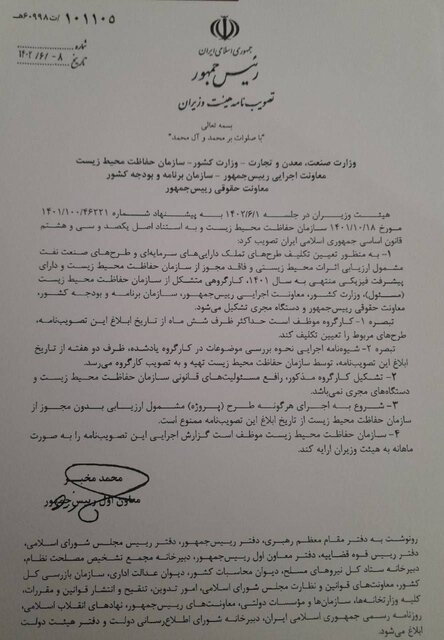 ۱۰۱۱۰۵/ت۶۰۹۹۸هـ
شماره
۱۴۰۲/۶/۰۸
تاریخ
جمهوری اسلامی ایران
رئیس جمهور
تصویب نامه هیئت وزیران
بسمه تعالی
"با صلوات بر محمد و آل محمد"
وزارت صنعت، معدن و تجارت - وزارت کشور - سازمان حفاظت محیط زیست
معاونت اجرایی رییس‌جمهور - سازمان برنامه و بودجه کشور
معاونت حقوقی رییس‌جمهور
هیئت وزیران در جلسه ۱۴۰۲/۶/۱ به پیشنهاد شماره ۱۴۰۱/۱۰۰/۴۶۲۲۱
مورخ ۱۴۰۱/۱۰/۱۸ سازمان حفاظت محیط زیست و به استناد اصل یکصد و سی و هشتم
قانون اساسی جمهوری اسلامی ایران تصویب کرد:
۱- به منظور تعیین تکلیف طرح‌های تملک دارایی‌های سرمایه‌ای و طرح‌های صنعت نفت
مشمول ارزیابی اثرات محیط زیستی و فاقد مجوز از سازمان حفاظت محیط زیست و دارای
پیشرفت فیزیکی منتهی به سال ۱۴۰۱، کارگروهی متشکل از سازمان حفاظت محیط زیست
(مسئول)، وزارت کشور، معاونت اجرایی رییس‌جمهور، سازمان برنامه و بودجه کشور،
معاونت حقوقی رییس‌جمهور و دستگاه مجری تشکیل می‌شود.
تبصره ۱- کارگروه موظف است حداکثر ظرف شش ماه از تاریخ ابلاغ این تصویب‌نامه،
طرح‌های مربوط را تعیین تکلیف کند.
تبصره ۲- شیوه‌نامه اجرایی نحوه بررسی موضوعات در کارگروه یادشده، ظرف دو هفته از تاریخ
ابلاغ این تصویب‌نامه، توسط سازمان حفاظت محیط زیست تهیه و به تصویب کارگروه می‌رسد.
۲- تشکیل کارگروه مذکور، رافع مسئولیت‌های قانونی سازمان حفاظت محیط زیست و
دستگاه‌های مجری نمی‌باشد.
۳- شروع به اجرای هرگونه طرح (پروژه) مشمول ارزیابی بدون مجوز از
سازمان حفاظت محیط زیست از تاریخ ابلاغ این تصویب‌نامه ممنوع است.
۴- سازمان حفاظت محیط زیست موظف است گزارش اجرایی این تصویب‌نامه را به صورت
ماهانه به هیئت وزیران ارایه کند.
محمد مخبر
معاون اول رییس جمهور
رونوشت به دفتر مقام معظم رهبری، دفتر رییس‌جمهور، دفتر رییس مجلس شورای اسلامی،
دفتر رییس قوه قضاییه، دفتر معاون اول رییس‌جمهور، دبیرخانه مجمع تشخیص مصلحت نظام،
دبیرخانه ستاد کل نیروهای مسلح، دیوان محاسبات کشور، دیوان عدالت اداری، سازمان بازرسی کل
کشور، معاونت‌های قوانین و نظارت مجلس شورای اسلامی، امور تدوین، تنقیح و انتشار قوانین و مقررات،
کلیه وزارتخانه‌ها، سازمان‌ها و مؤسسات دولتی، معاونت‌های رییس‌جمهور، نهادهای انقلاب اسلامی،
روزنامه رسمی جمهوری اسلامی ایران، دبیرخانه شورای اطلاع‌رسانی دولت و دفتر هیئت دولت
ابلاغ می‌شود.